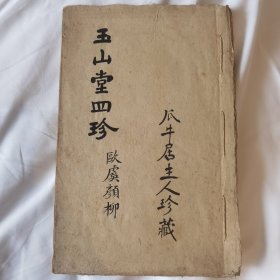 玉山堂四珍
歐虞顏柳
瓜牛居主人珍藏